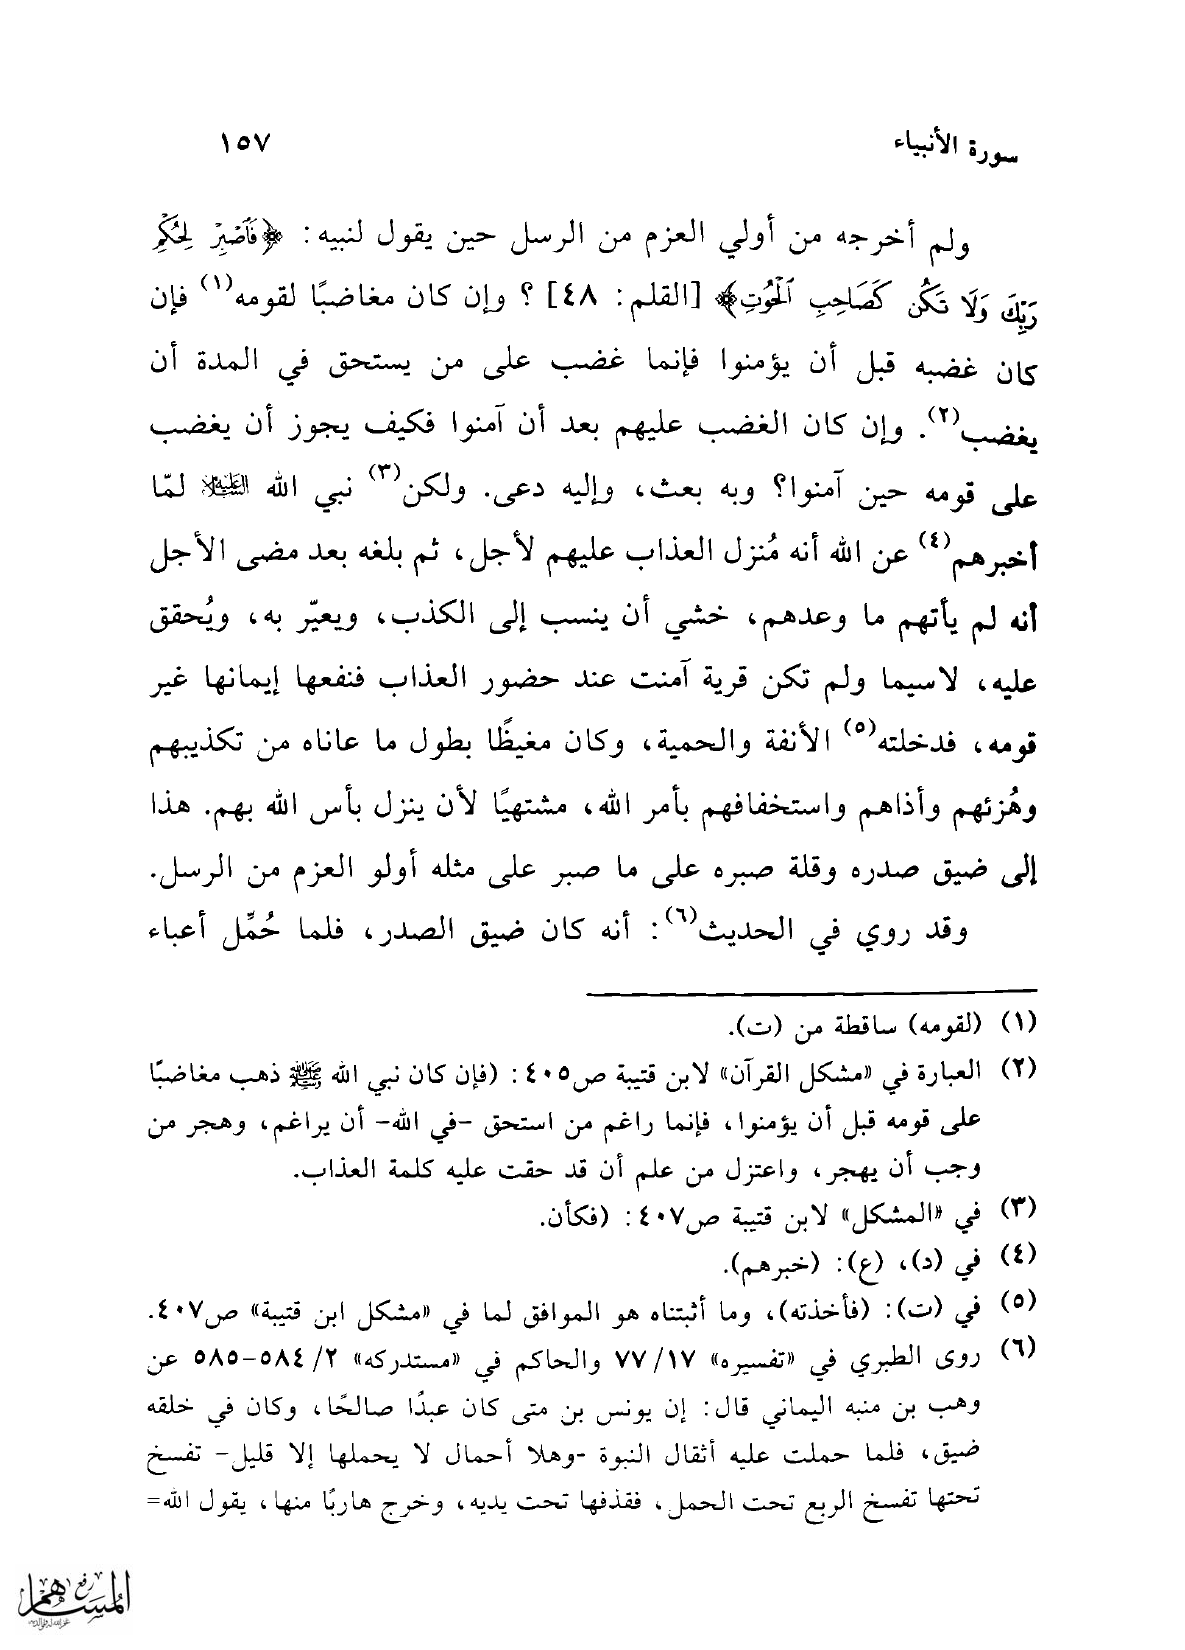 سورة الأنبياء ١٥٧
ولم أخرجه من أولي العزم من الرسل حين يقول لنبيه: ﴿فَٱصْبِرْ لِحُكْمِ
رَبِّكَ وَلَا تَكُن كَصَاحِبِ ٱلْحُوتِ﴾ [القلم: ٤٨] ؟ وإن كان مغاضبًا لقومه(١) فإن
كان غضبه قبل أن يؤمنوا فإنما غضب على من يستحق في المدة أن
يغضب(٢). وإن كان الغضب عليهم بعد أن آمنوا فكيف يجوز أن يغضب
على قومه حين آمنوا؟ وبه بعث، وإليه دعى. ولكن(٣) نبي الله عليه السلام لمّا
أخبرهم(٤) عن الله أنه مُنزل العذاب عليهم لأجل، ثم بلغه بعد مضى الأجل
أنه لم يأتهم ما وعدهم، خشي أن ينسب إلى الكذب، ويعيّر به، ويُحقق
عليه، لاسيما ولم تكن قرية آمنت عند حضور العذاب فنفعها إيمانها غير
قومه، فدخلته(٥) الأنفة والحمية، وكان مغيظًا بطول ما عاناه من تكذيبهم
وهُزئهم وأذاهم واستخفافهم بأمر الله، مشتهيًا لأن ينزل بأس الله بهم. هذا
إلى ضيق صدره وقلة صبره على ما صبر على مثله أولو العزم من الرسل.
وقد روي في الحديث(٦): أنه كان ضيق الصدر، فلما حُمِّل أعباء
(١) (لقومه) ساقطة من (ت).
(٢) العبارة في «مشكل القرآن» لابن قتيبة ص٤٠٥: (فإن كان نبي الله ﷺ ذهب مغاضبًا
على قومه قبل أن يؤمنوا، فإنما راغم من استحق -في الله- أن يراغم، وهجر من
وجب أن يهجر، واعتزل من علم أن قد حقت عليه كلمة العذاب.
(٣) في «المشكل» لابن قتيبة ص٤٠٧: (فكأن.
(٤) في (د)، (ع): (خبرهم).
(٥) في (ت): (فأخذته)، وما أثبتناه هو الموافق لما في «مشكل ابن قتيبة» ص٤٠٧.
(٦) روى الطبري في «تفسيره» ١٧/ ٧٧ والحاكم في «مستدركه» ٢/ ٥٨٤-٥٨٥ عن
وهب بن منبه اليماني قال: إن يونس بن متى كان عبدًا صالحًا، وكان في خلقه
ضيق، فلما حملت عليه أثقال النبوة -وهلا أحمال لا يحملها إلا قليل- تفسخ
تحتها تفسخ الربع تحت الحمل، فقذفها تحت يديه، وخرج هاربًا منها، يقول الله=